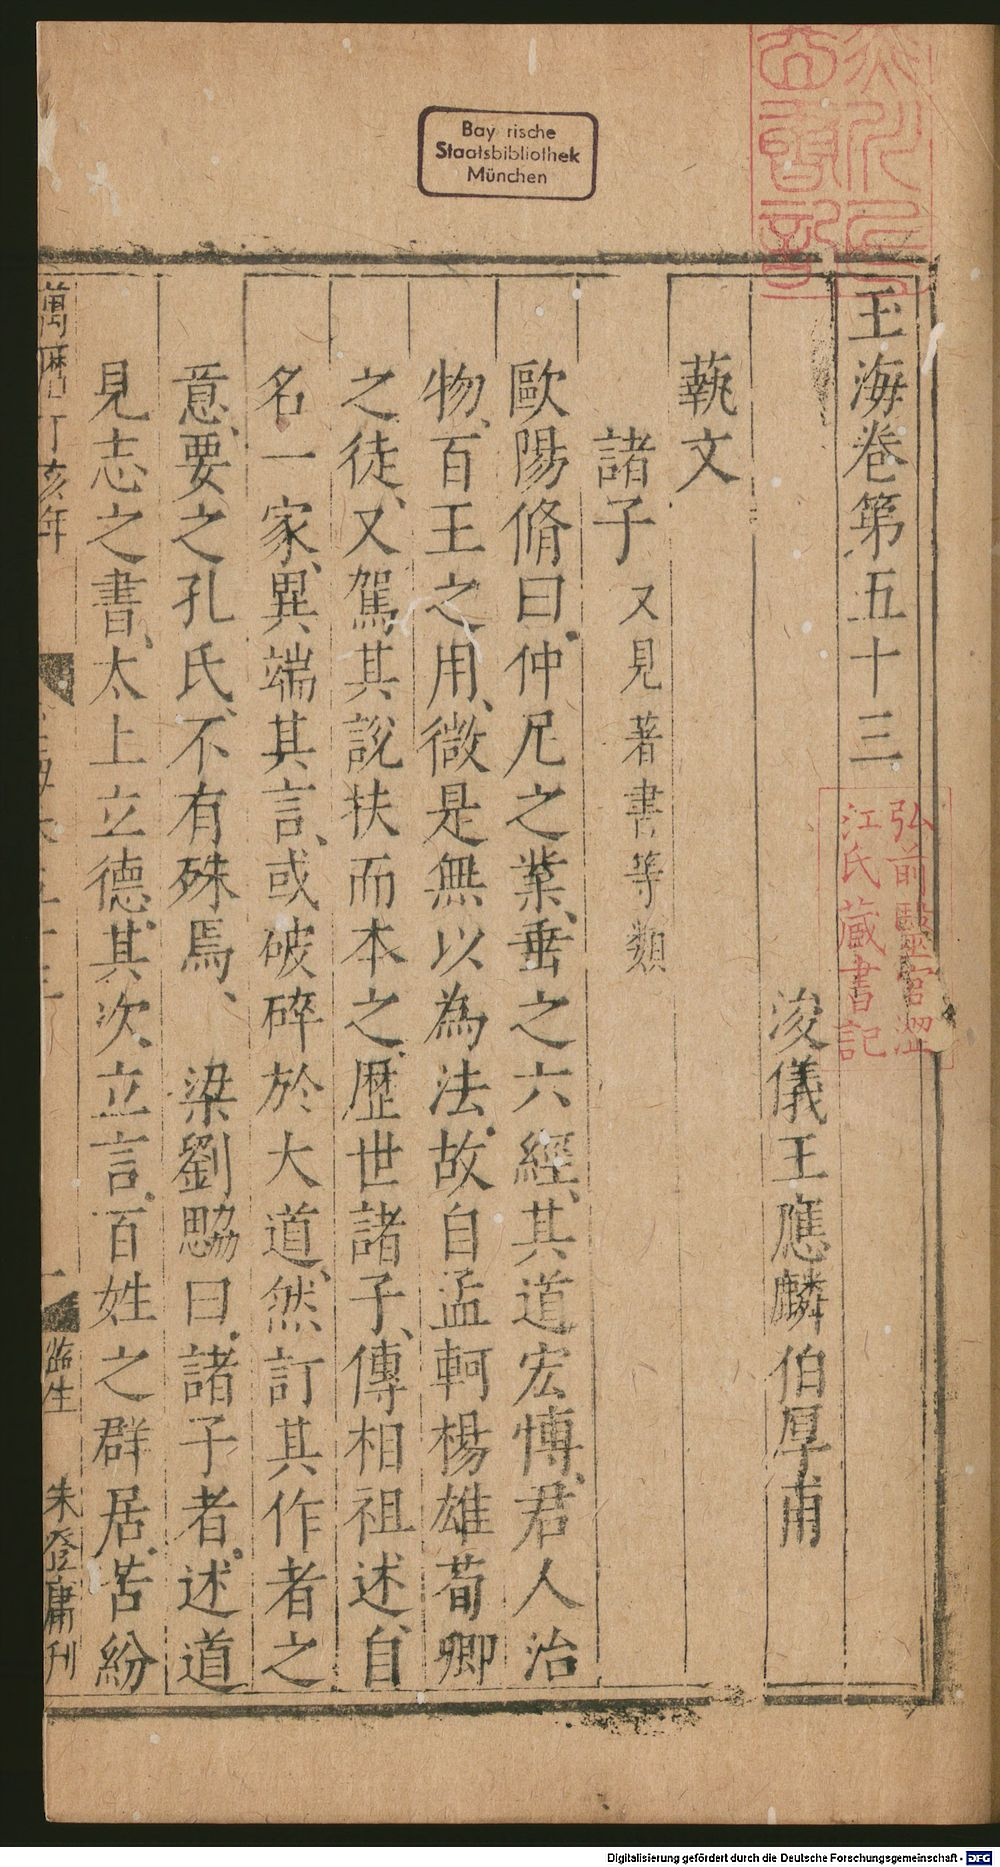 Bay rische
Staatsbibliothek
München
玉海卷第五十三
浚儀王應麟伯厚甫
弘前醫官澀
江氏蔵書記
蓺文
諸子 又見著書等類
歐陽脩曰仲尼之業、垂之六經、其道宏博、君人治
物、百王之用、微是無以為法故自孟軻楊雄荀卿
之徒、又駕其說扶而本之歷世諸子、傳相祖述、自
名一家、異端其言、或破碎於大道、然訂其作者之
意、要之孔氏、不有殊焉、 梁劉勰曰諸子者、述道
見志之書、太上立德、其次立言、百姓之群居、苦紛
萬曆丁亥年
一
監生
朱登庸刊
Digitalisierung gefördert durch die Deutsche Forschungsgemeinschaft - DFG